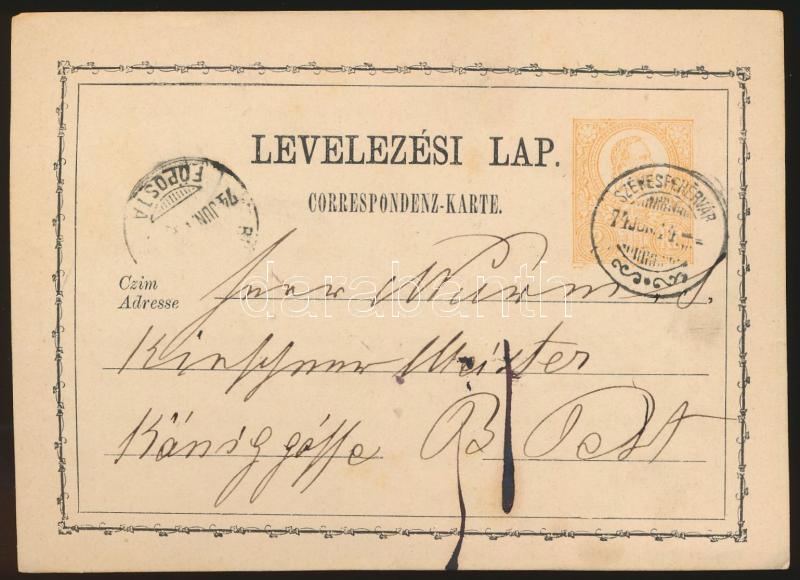 LEVELEZÉSI LAP.
CORRESPONDENZ-KARTE.
FŐPOSTA
74 JUN.
SZÉKESFEHÉRVÁR
74 JUN. 24
Czim
Adresse
Herr
Kirschner Meister
Königgasse B Pest
darabanth